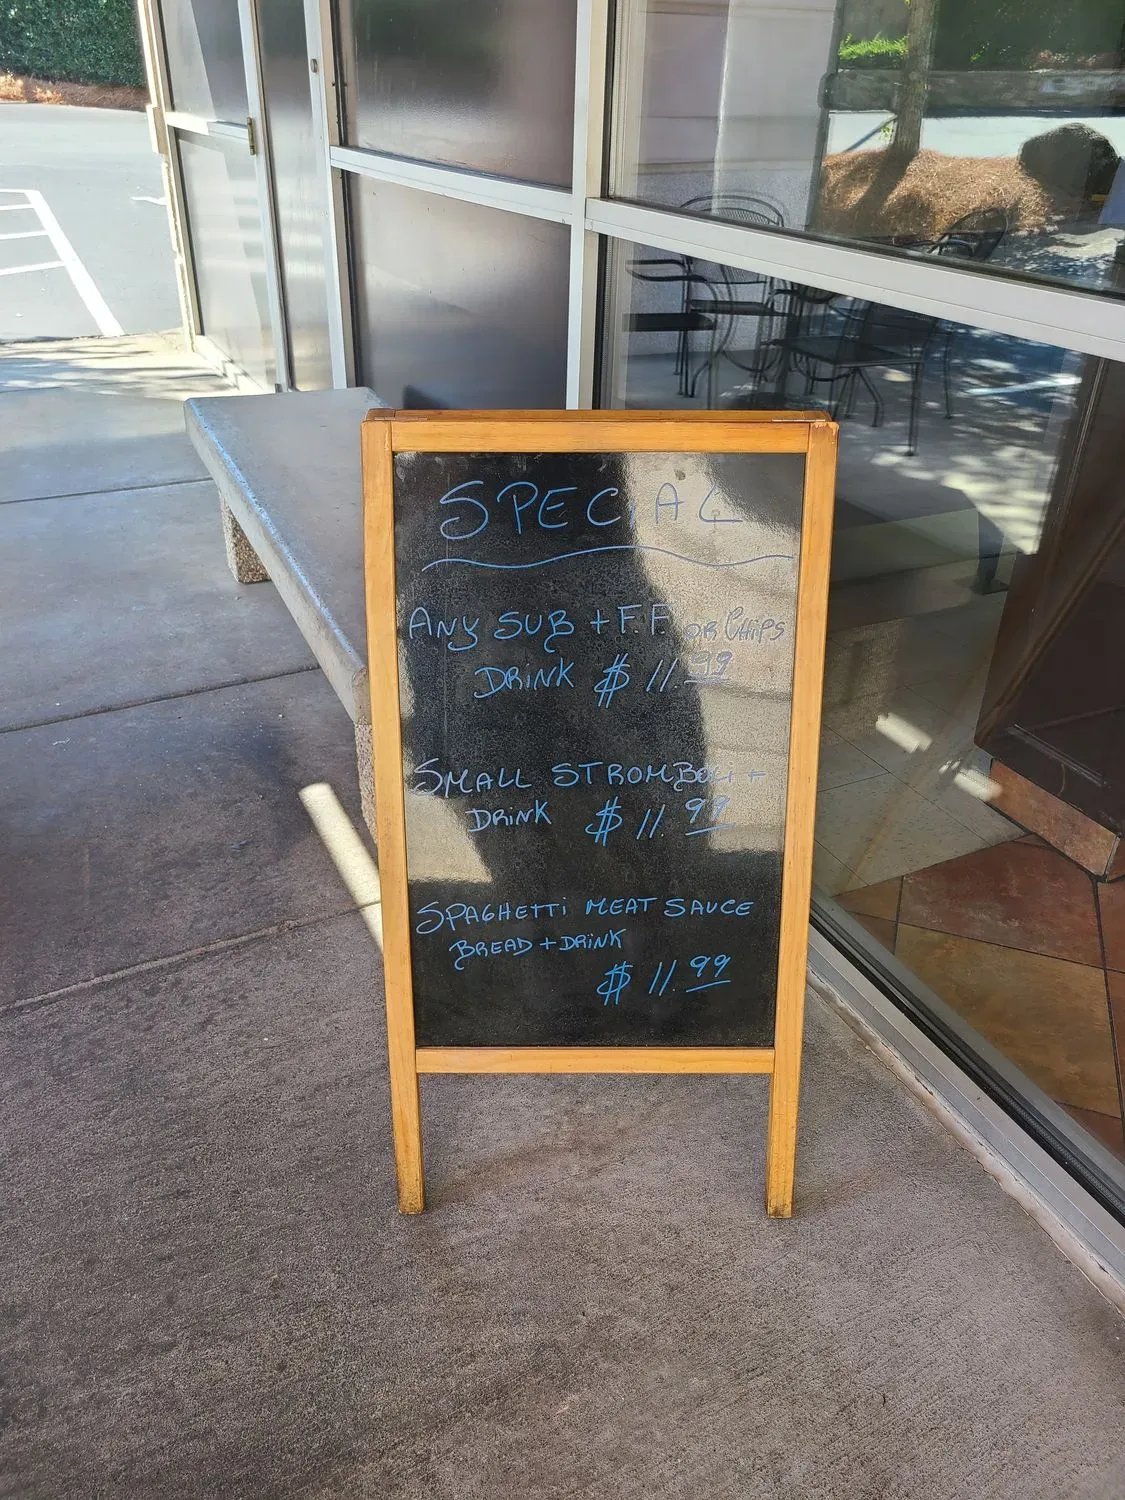 SPECIAL
ANY SUB + F.F. OR CHIPS
DRINK $ 11.99
SMALL STROMBOLI +
DRINK $ 11.99
SPAGHETTI MEAT SAUCE
BREAD + DRINK
$ 11.99